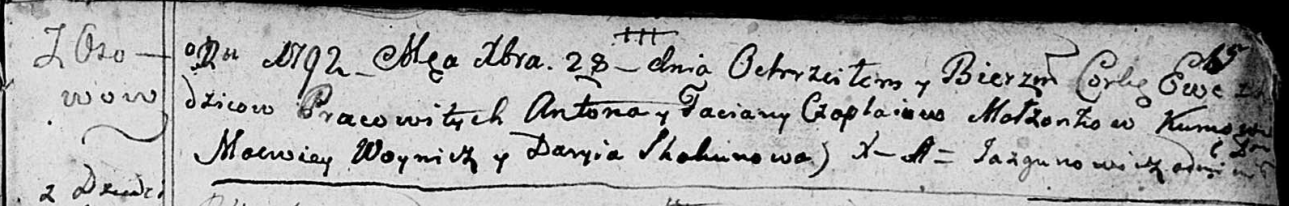 Z Oso—
wow
Ru 1792 Mca Xbra. 28 – dnia Ochrzciłem y Bierzm Corkę Ewe
dzicow Pracowitych Antona y Taciany Czaplaiow Małżonkow Kumowie
Maciey Woynicz y Daryia Skakunowa) X – A = Jazgunowicz
z Dziedzi
15